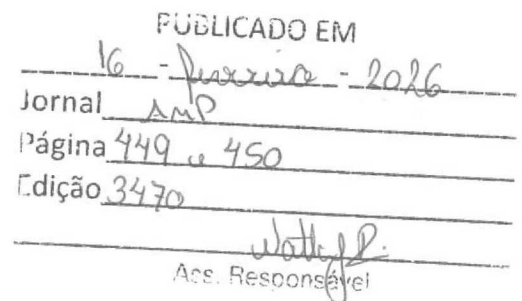 PUBLICADO EM
16 - Fevereiro - 2026
Jornal AMP
Página 449 e 450
Edição 3470
Ass. Responsável